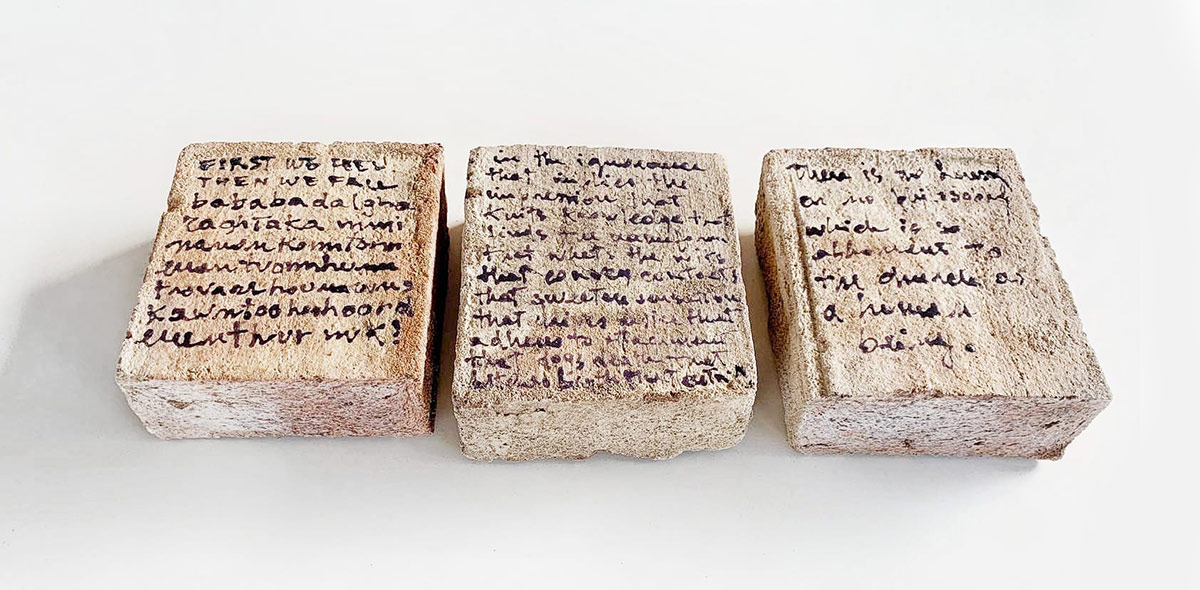 FIRST WE FEEL
THEN WE FALL
bababadalgha
raghtaka mmi
trovarrhounawns
kawntoohoohoord
enenthurnuk!
in the ignorance
that implies the
impression that
knits knowledge that
finds the nameform
that whets the wits
that convey contacts
that sweeten sensation
that drives desire that
adheres to attachment
that dogs death that
bitches birth that entails
There is no heresy
or no philosophy
which is so
abhorrent to
the church as
a human
being.